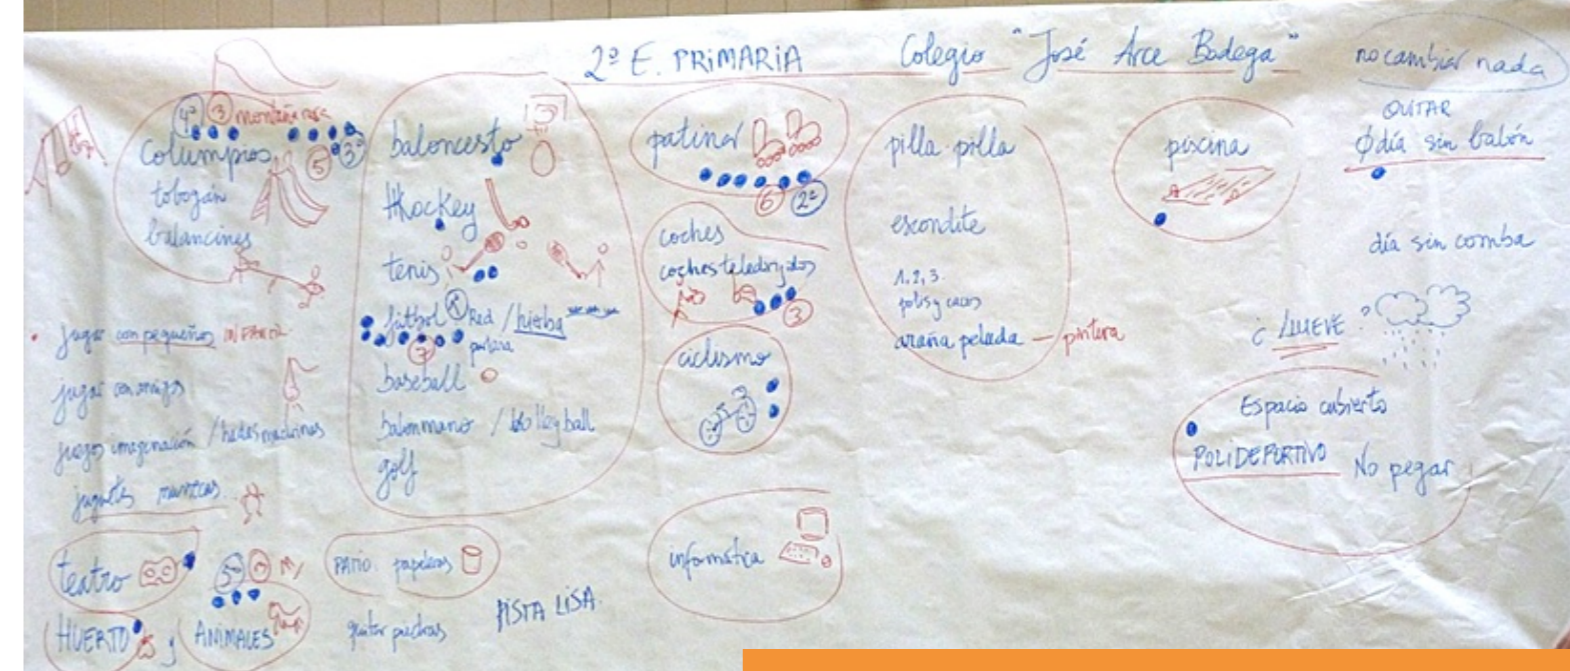 2º E. PRIMARIA Colegio "José Arce Bodega"
no cambiar nada
4º 3 montaña rusa
columpios 5 3º
tobogán
balancines
jugar con pequeños INFANTIL
jugar con amigos
juegos imaginación / hadas madrinas
juguetes
teatro
5º 3
HUERTO y ANIMALES
baloncesto
Hockey
tenis
fútbol Red / hierba
7 portería
baseball
balonmano / Volleyball
golf
PATIO: papeleras
quitar piedras
PISTA LISA
patinar
6 2º
coches
coches teledirigidos
3
ciclismo
informática
pilla-pilla
escondite
1, 2, 3.
polis y cacos
araña pelada — pintura
piscina
QUITAR
día sin balón
día sin comba
¿LLUEVE?
Espacio cubierto
POLIDEPORTIVO
No pegar